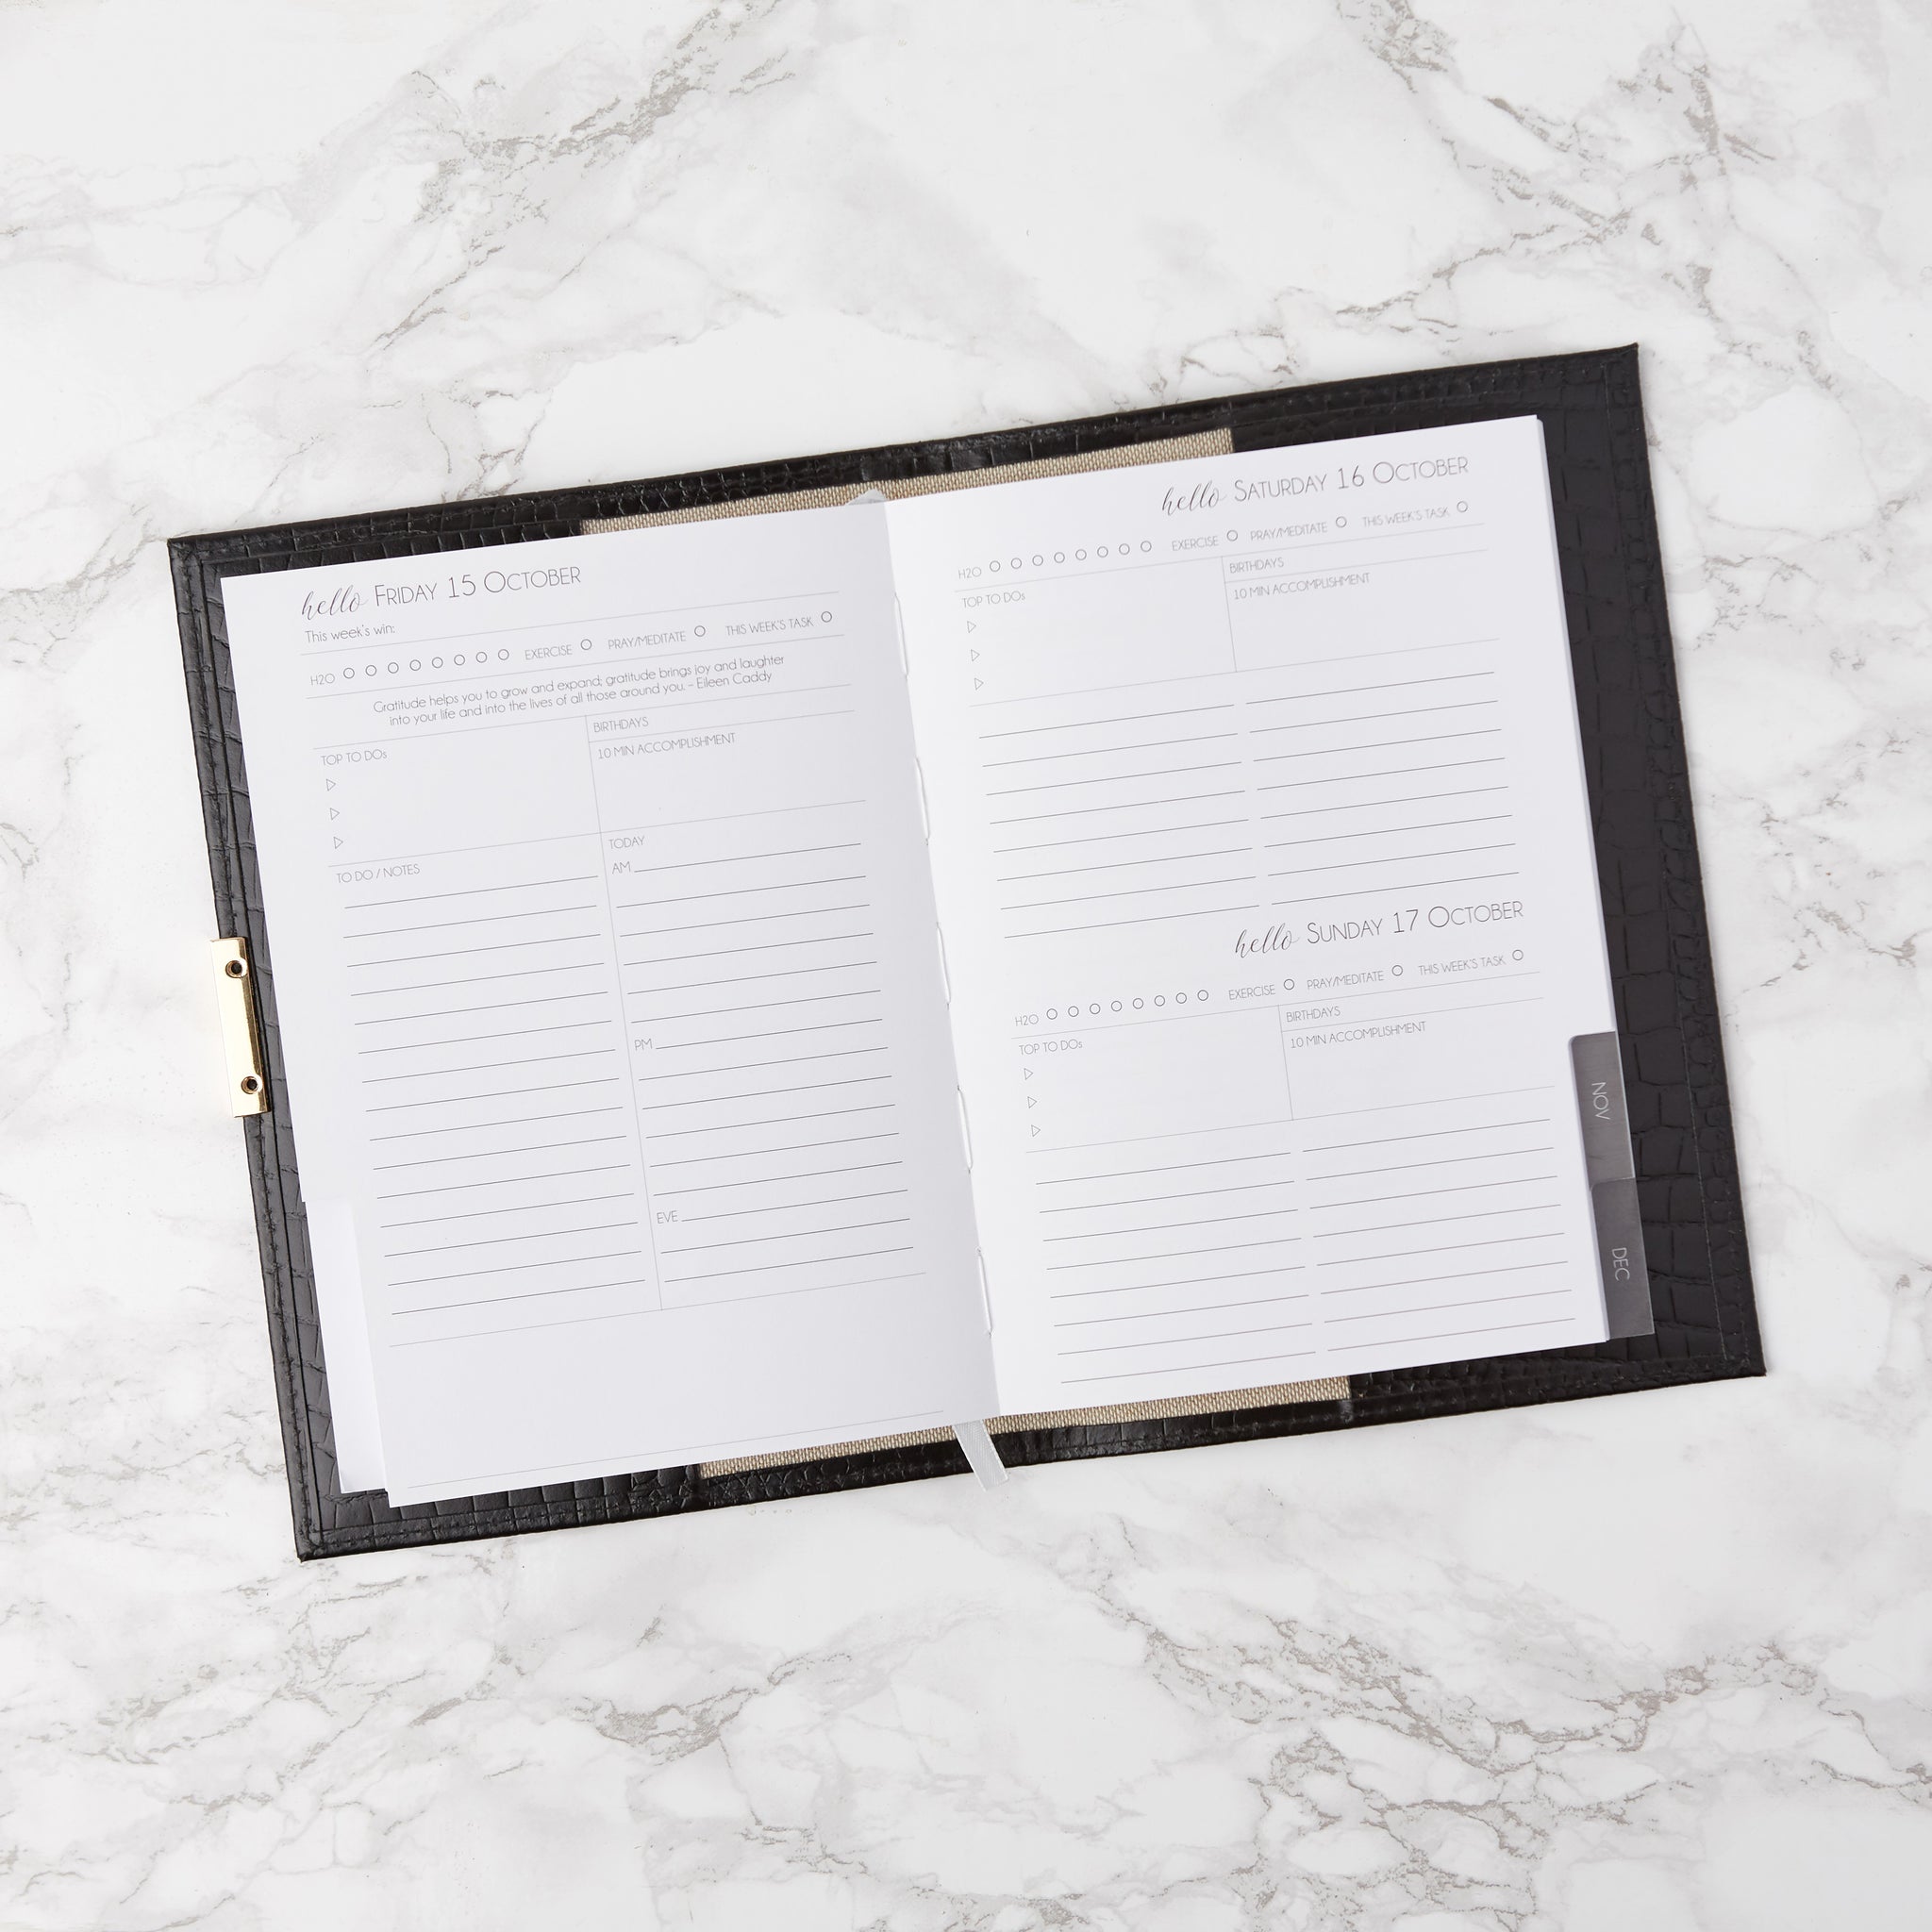 hello FRIDAY 15 OCTOBER
This week's win:
H2O EXERCISE PRAY/MEDITATE THIS WEEK'S TASK
Gratitude helps you to grow and expand; gratitude brings joy and laughter
into your life and into the lives of all those around you. – Eileen Caddy
TOP TO DOs
BIRTHDAYS
10 MIN ACCOMPLISHMENT
TO DO / NOTES
TODAY
AM
PM
EVE
hello SATURDAY 16 OCTOBER
H2O EXERCISE PRAY/MEDITATE THIS WEEK'S TASK
TOP TO DOs
BIRTHDAYS
10 MIN ACCOMPLISHMENT
hello SUNDAY 17 OCTOBER
H2O EXERCISE PRAY/MEDITATE THIS WEEK'S TASK
TOP TO DOs
BIRTHDAYS
10 MIN ACCOMPLISHMENT
NOV
DEC